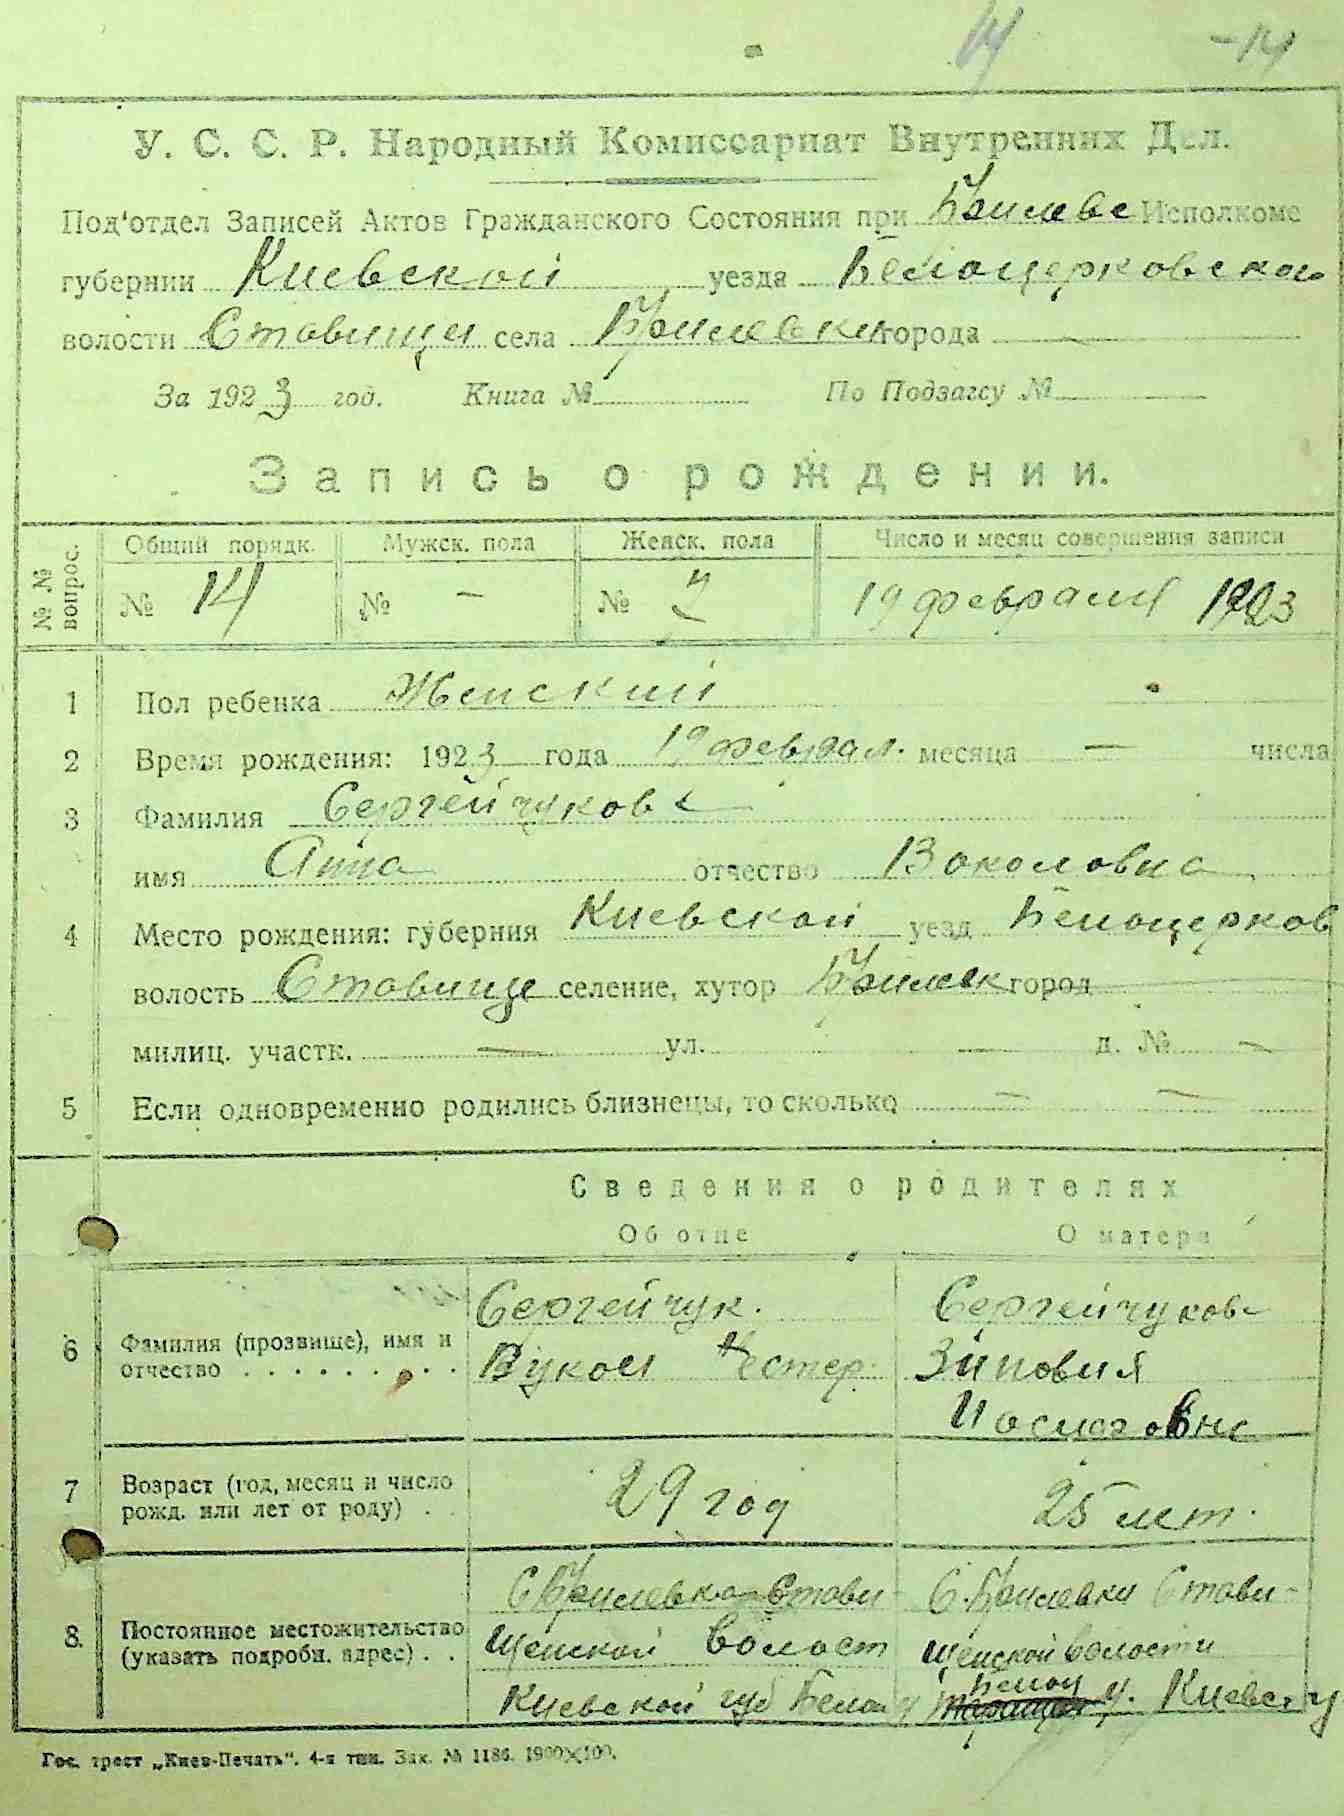 14 -14
У. С. С. Р. Народный Комиссариат Внутренних Дел.
Под'отдел Записей Актов Гражданского Состояния при Брилевс Исполкоме
губернии Киевской уезда Белоцерковско
волости Ставищи села Брилевки города —
За 1923 год. Книга № По Подзагсу №
Запись о рождении.
№ № вопрос. Общий порядк. Мужск. пола Женск. пола Число и месяц совершения записи
№ 14 № - № 7 19 февраля 1923
1 Пол ребенка Женский
2 Время рождения: 1923 года 19 феврал. месяца — числа
3 Фамилия Сергейчукова
имя Анна отчество Воколовна
4 Место рождения: губерния Киевской уезд Белоцерков
волость Ставище селение, хутор Брилевк город
милиц. участк. — ул. — д. № -
5 Если одновременно родились близнецы, то сколько — —
Сведения о родителях
Об отце О матери
6 Фамилия (прозвище), имя и отчество . . . . . . . . .
Сергейчук.
Вукол Нестер.
Сергейчукова
Зиновия
7 Возраст (год, месяц и число рожд. или лет от роду) . .
29 год
25 лет.
8. Постоянное местожительство (указать подробн. адрес) . .
С Брилевка Стави-
щенской волост
Киевской губ Белоц у
С. Брилевки Стави-
щенской волости
Белоц у. Киевс гу
Гос. трест „Киев-Печать“. 4-я тип. Зак. № 1186. 1900×100.